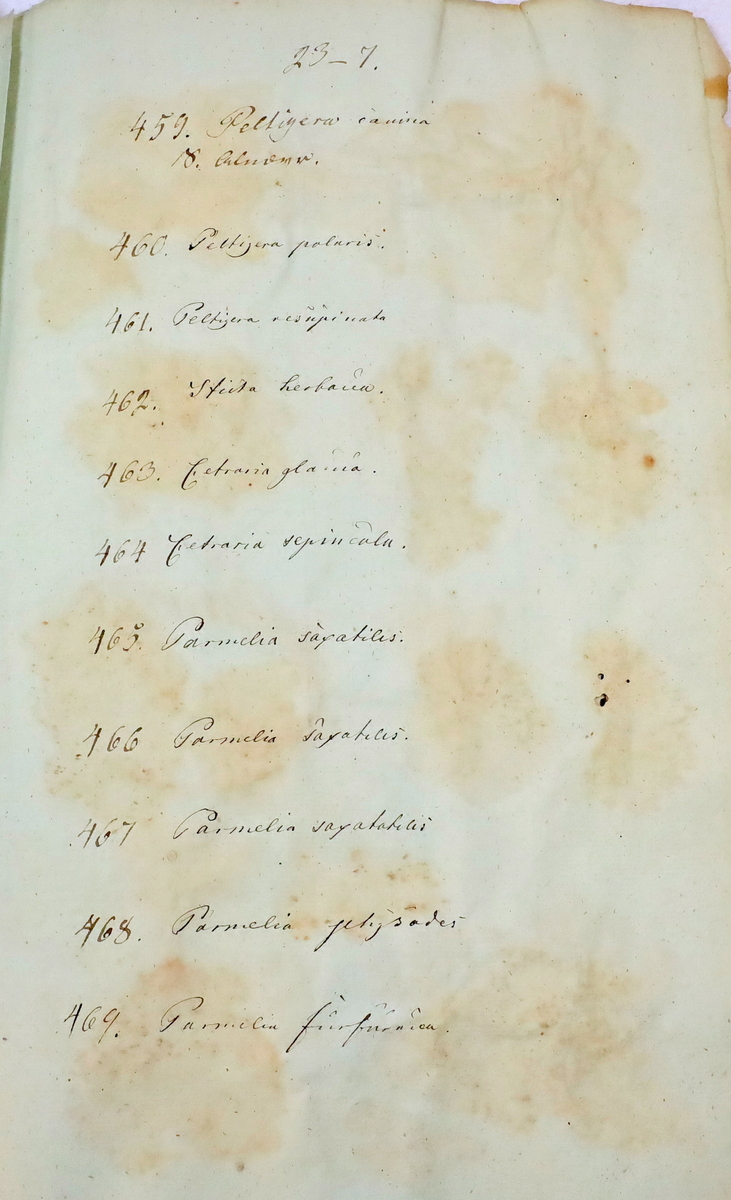 23–7.
459. Peltigera canina
460. Peltigera polaris.
461. Peltigera resupinata
462. Sticta herbacea.
463. Cetraria glauca.
464 Cetraria sepincola.
465. Parmelia saxatilis.
466 Parmelia saxatilis.
467 Parmelia saxatatilis
468. Parmelia physodes
469. Parmelia furfuracea.